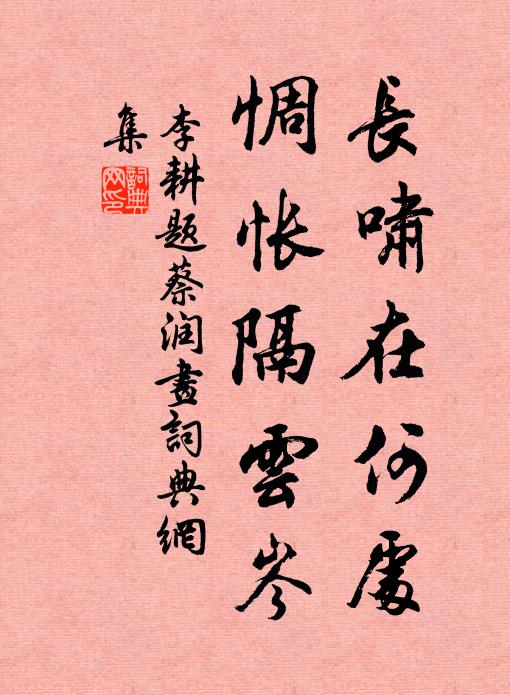 長嘯在何處
惆悵隔雲岑
李耕题蔡润畫詞典網
集
詞典
网印